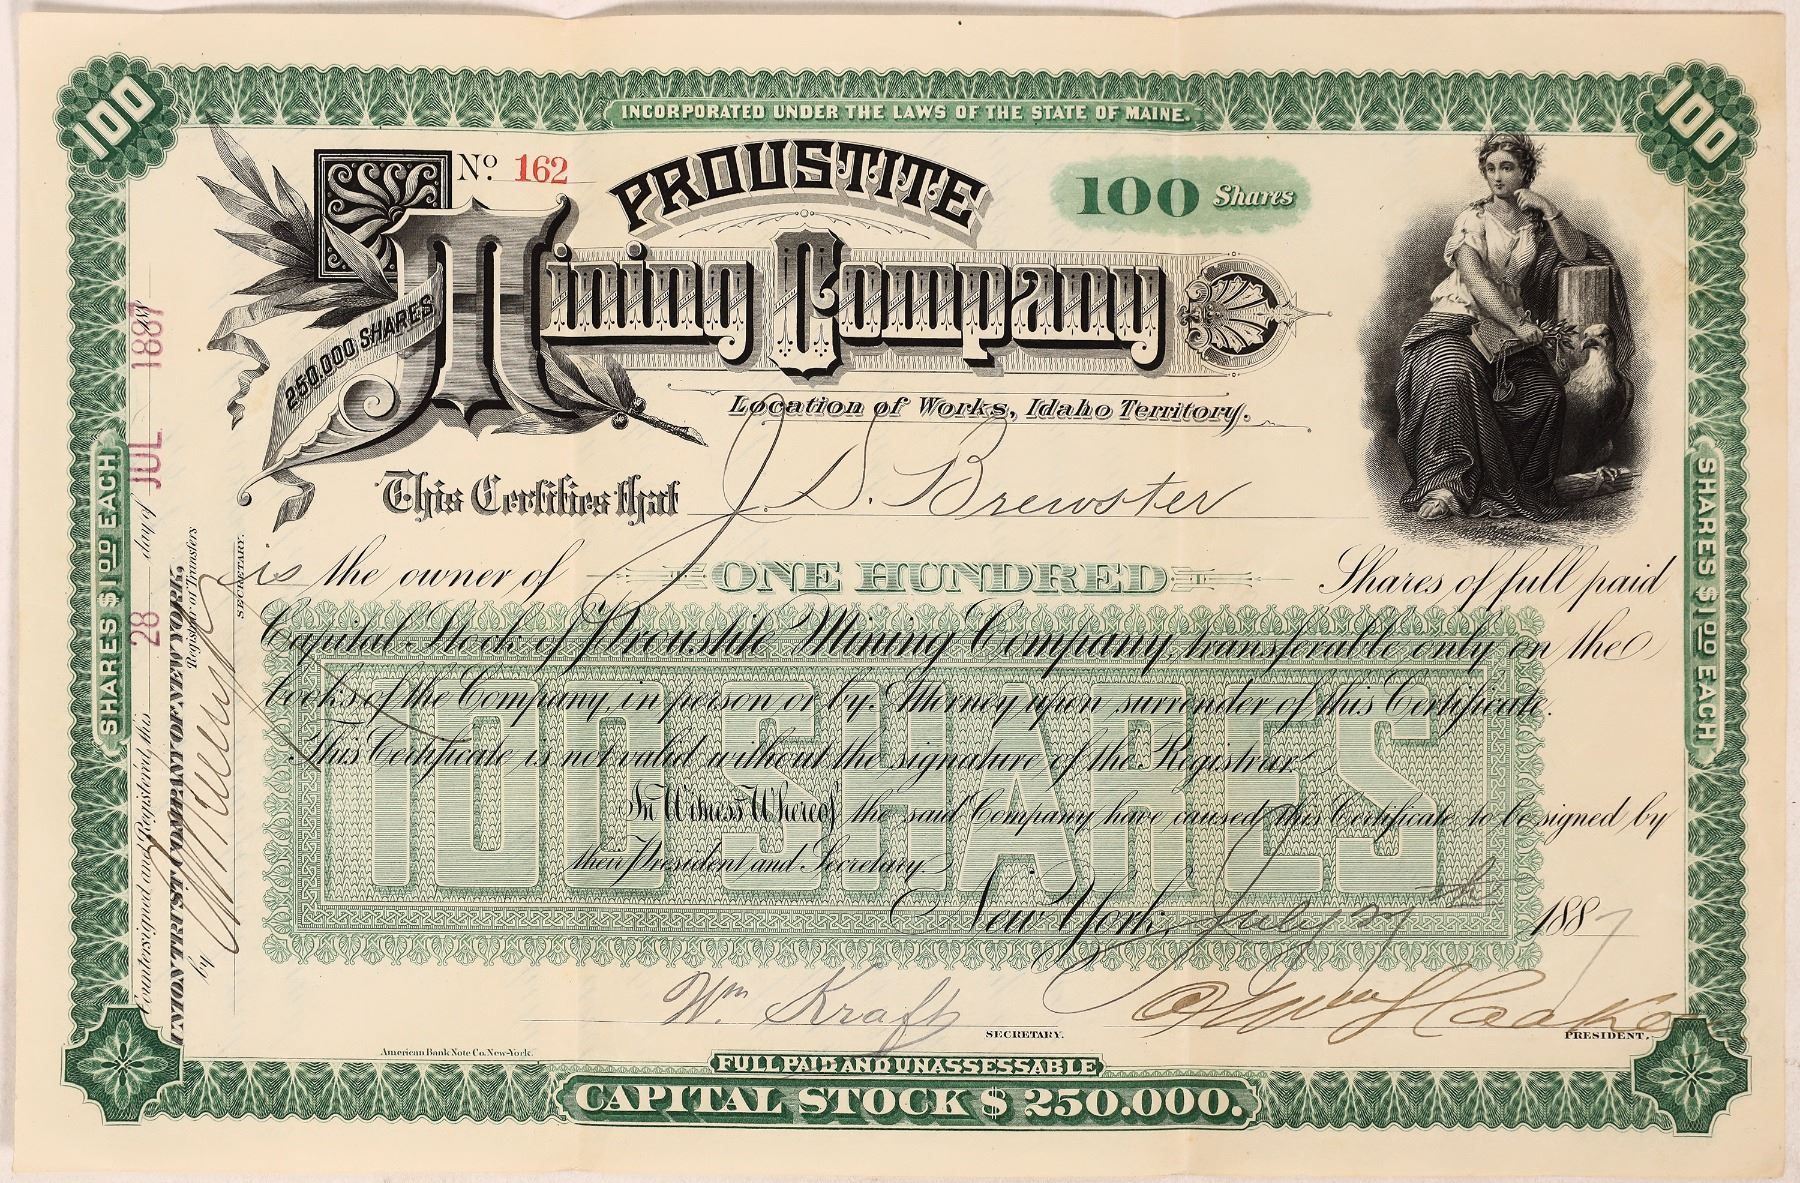 100
INCORPORATED UNDER THE LAWS OF THE STATE OF MAINE.
100
No. 162
PROUSTITE
100 Shares
Mining Company
250.000 SHARES
Location of Works, Idaho Territory.
This Certifies that J. S. Brewster
is the owner of ONE HUNDRED Shares of full paid
Capital Stock of Proustite Mining Company, transferable only on the
books of the Company, in person or by Attorney upon surrender of this Certificate.
This Certificate is not valid without the signature of the Registrar
In Witness Whereof the said Company have caused this Certificate to be signed by
their President and Secretary.
100 SHARES
New York, July 27th 1887
Wm Kraft
SECRETARY.
PRESIDENT.
American Bank Note Co. New-York.
FULL PAID AND UNASSESSABLE
CAPITAL STOCK $ 250.000.
SHARES $1 00 EACH
SHARES $1 00 EACH
Countersigned and Registered, this 28 day of JUL 1887
UNION TRUST COMPANY OF NEW YORK,
Registrar of Transfers
by
SECRETARY.